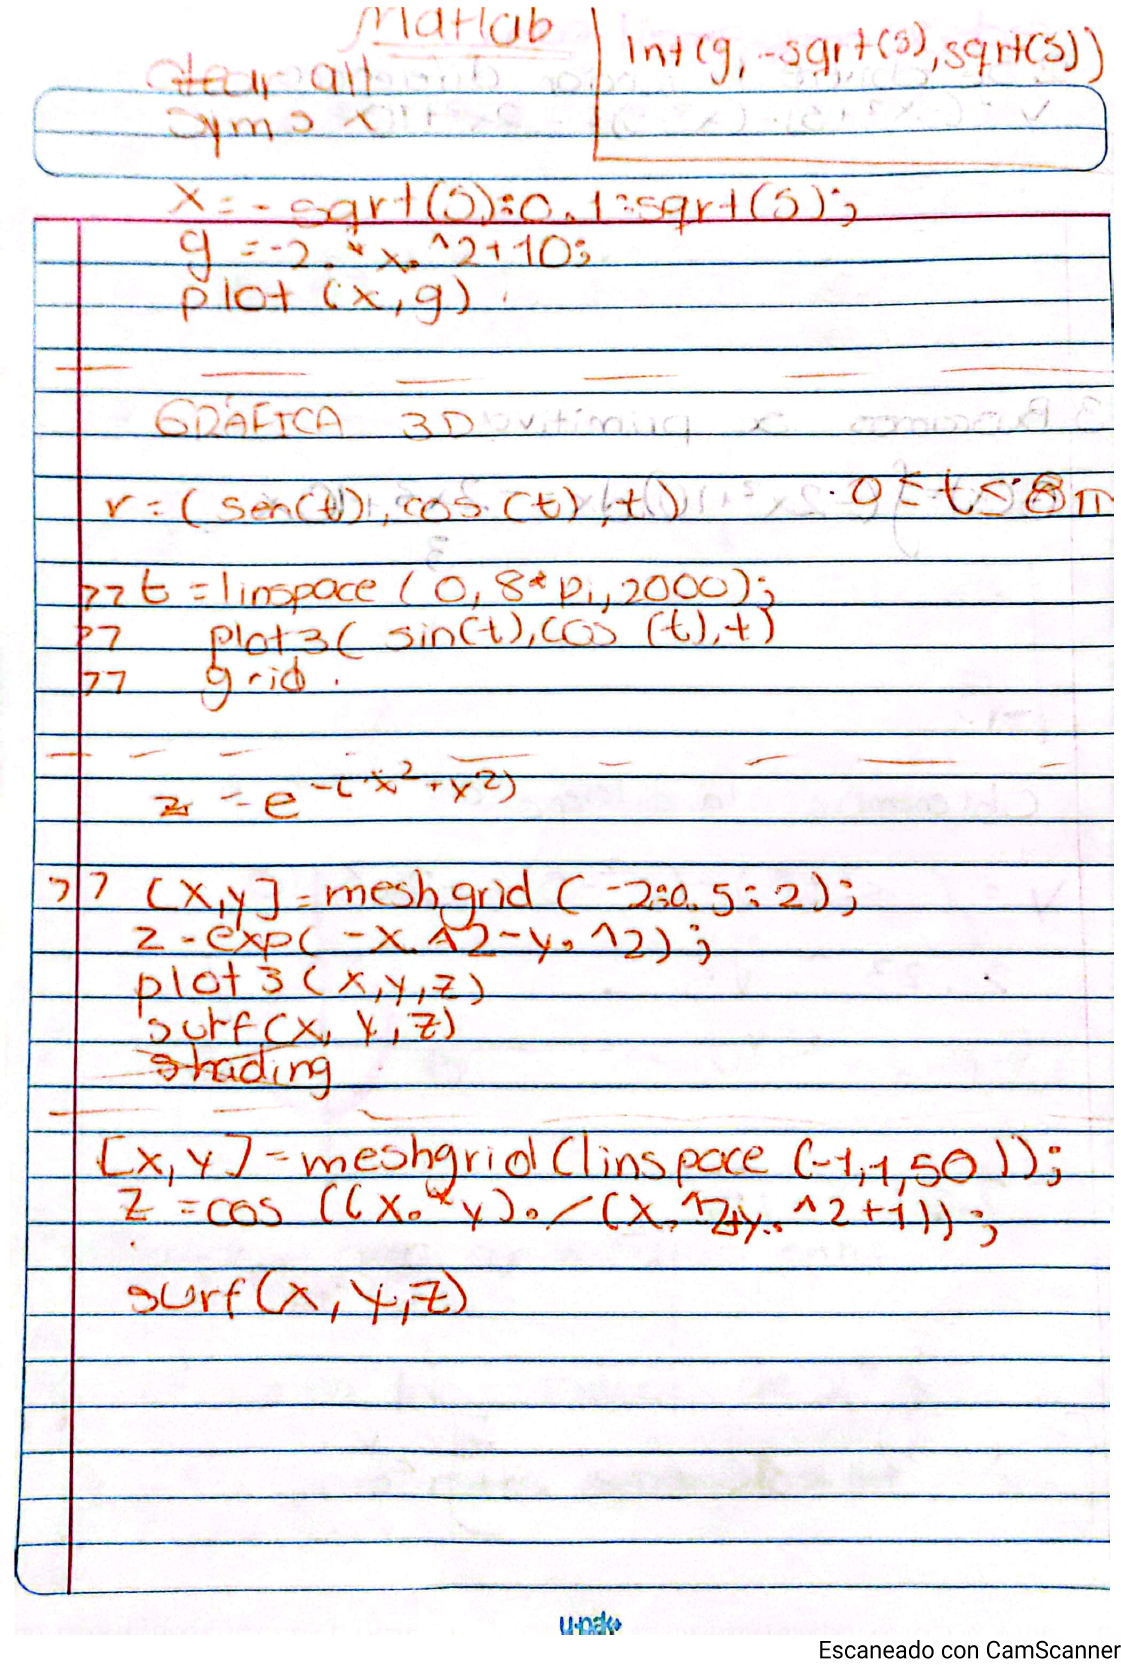 Matlab
int(g, -sqrt(5), sqrt(5))
clear all
syms x
x = - sqrt(5):0.1:sqrt(5);
g = -2.*x.^2+10;
plot (x,g)
GRÁFICA 3D
r = (sen(t), cos (t), t) 0 ≤ t ≤ 8π
>> t = linspace (0, 8*pi, 2000);
>> plot3( sin(t), cos (t), t)
>> grid
z = e^-(x^2+x^2)
>> [x,y] = meshgrid (-2:0.5:2);
z = exp( -x.^2-y.^2);
plot 3 (x,y,z)
surf(x, y, z)
shading
[x, y] = meshgrid (linspace (-1,1,50));
z = cos ((x.*y)./(x.^2+y.^2+1));
surf(x, y, z)
Escaneado con CamScanner